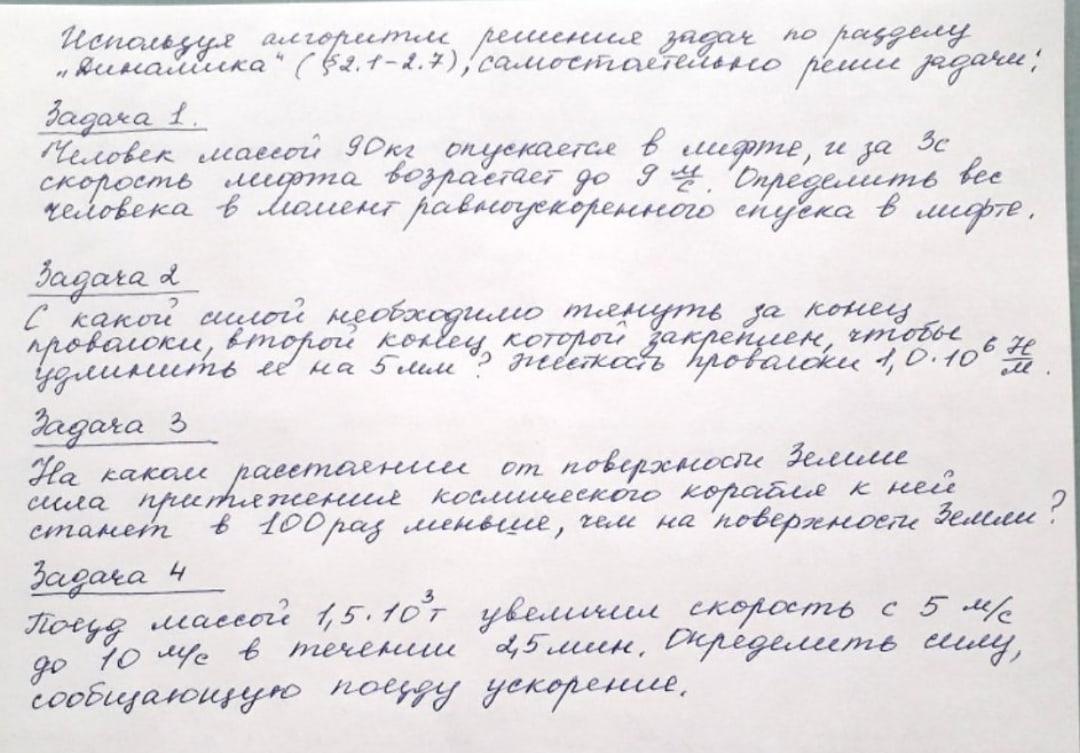 Используя алгоритм решения задач по разделу
„Динамика" (§2.1-2.7), самостоятельно реши задачи:
Задача 1.
Человек массой 90кг опускается в лифте, и за 3с
скорость лифта возрастает до 9 м/с. Определить вес
человека в момент равноускоренного спуска в лифте.
Задача 2
С какой силой необходимо тянуть за конец
проволоки, второй конец которой закреплен, чтобы
удлинить ее на 5мм? Жесткость проволоки 1,0·10⁶ Н/м.
Задача 3
На каком расстоянии от поверхности Земли
сила притяжения космического корабля к ней
станет в 100 раз меньше, чем на поверхности Земли?
Задача 4
Поезд массой 1,5·10³т увеличил скорость с 5 м/с
до 10 м/с в течении 2,5 мин. Определить силу,
сообщающую поезду ускорение.